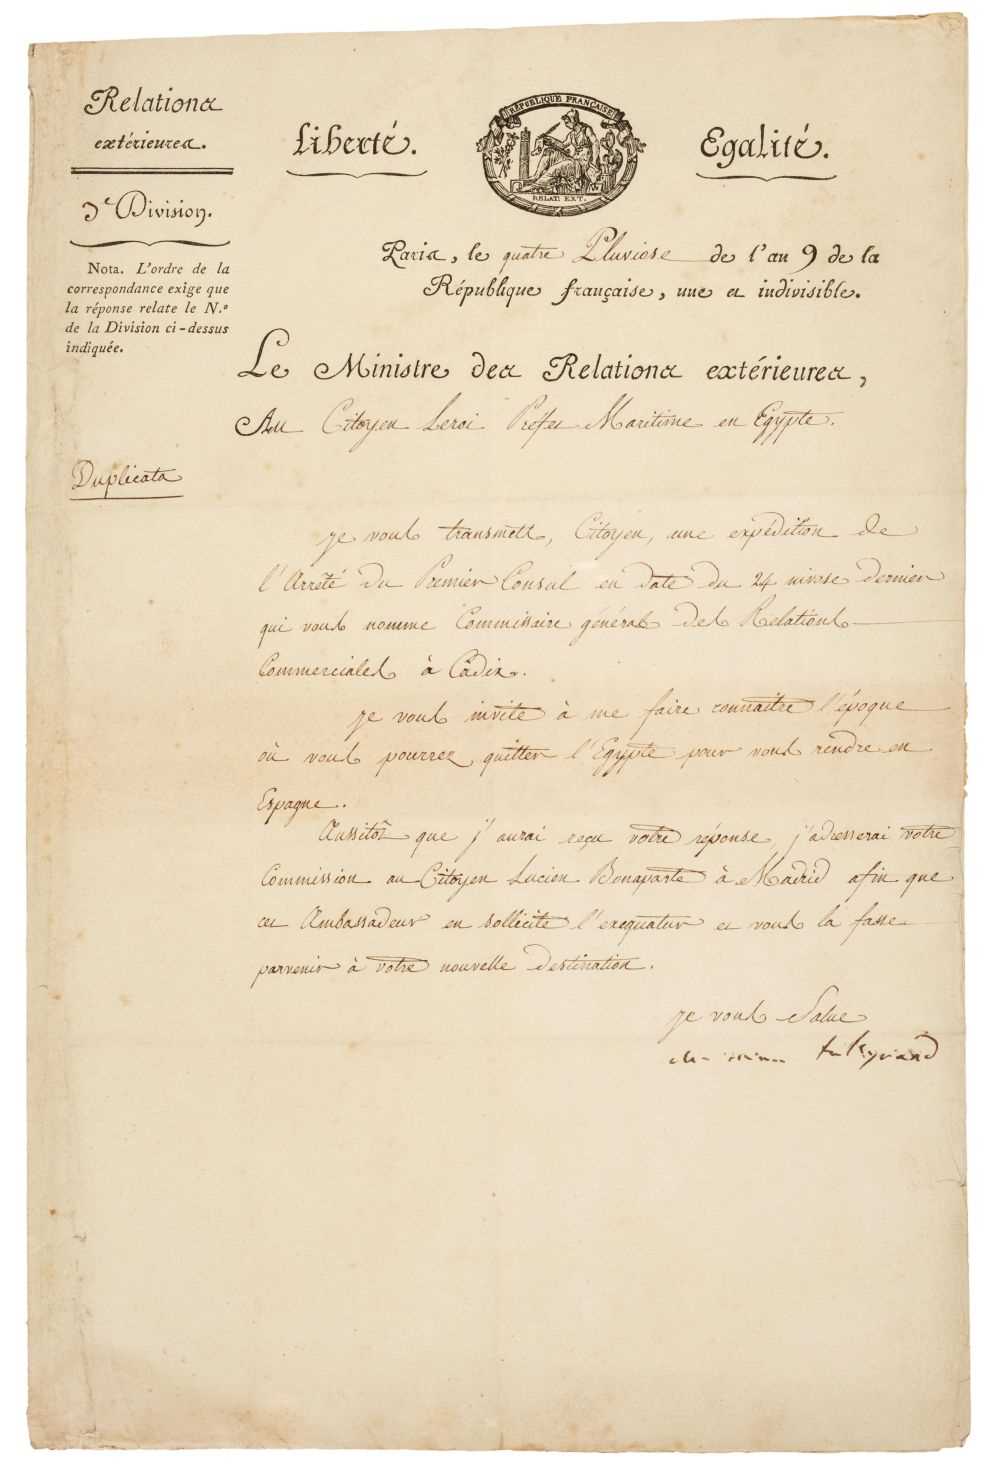 Relations
extérieures.
Liberté.
RÉPUBLIQUE FRANÇAISE
RELAT. EXT.
Egalité.
Division.
Nota. L'ordre de la
correspondance exige que
la réponse relate le N.º
de la Division ci-dessus
indiquée.
Paris, le quatre Pluviose de l'an 9 de la
République française, une et indivisible.
Le Ministre des Relations extérieures,
Au Citoyen Leroi Préfet Maritime en Egypte.
Duplicata
je vous transmets, Citoyen, une expédition de
l'Arrêté du Premier Consul en date du 24 nivose dernier
qui vous nomme Commissaire général des Relations
Commerciales à Cadix.
je vous invite à me faire connaître l'époque
où vous pourrez quitter l'Egypte pour vous rendre en
Espagne.
Aussitôt que j'aurai reçu votre réponse, j'adresserai votre
Commission au Citoyen Lucien Bonaparte à Madrid afin que
cet Ambassadeur en sollicite l'exequatur et vous la fasse
parvenir à votre nouvelle destination.
je vous Salue